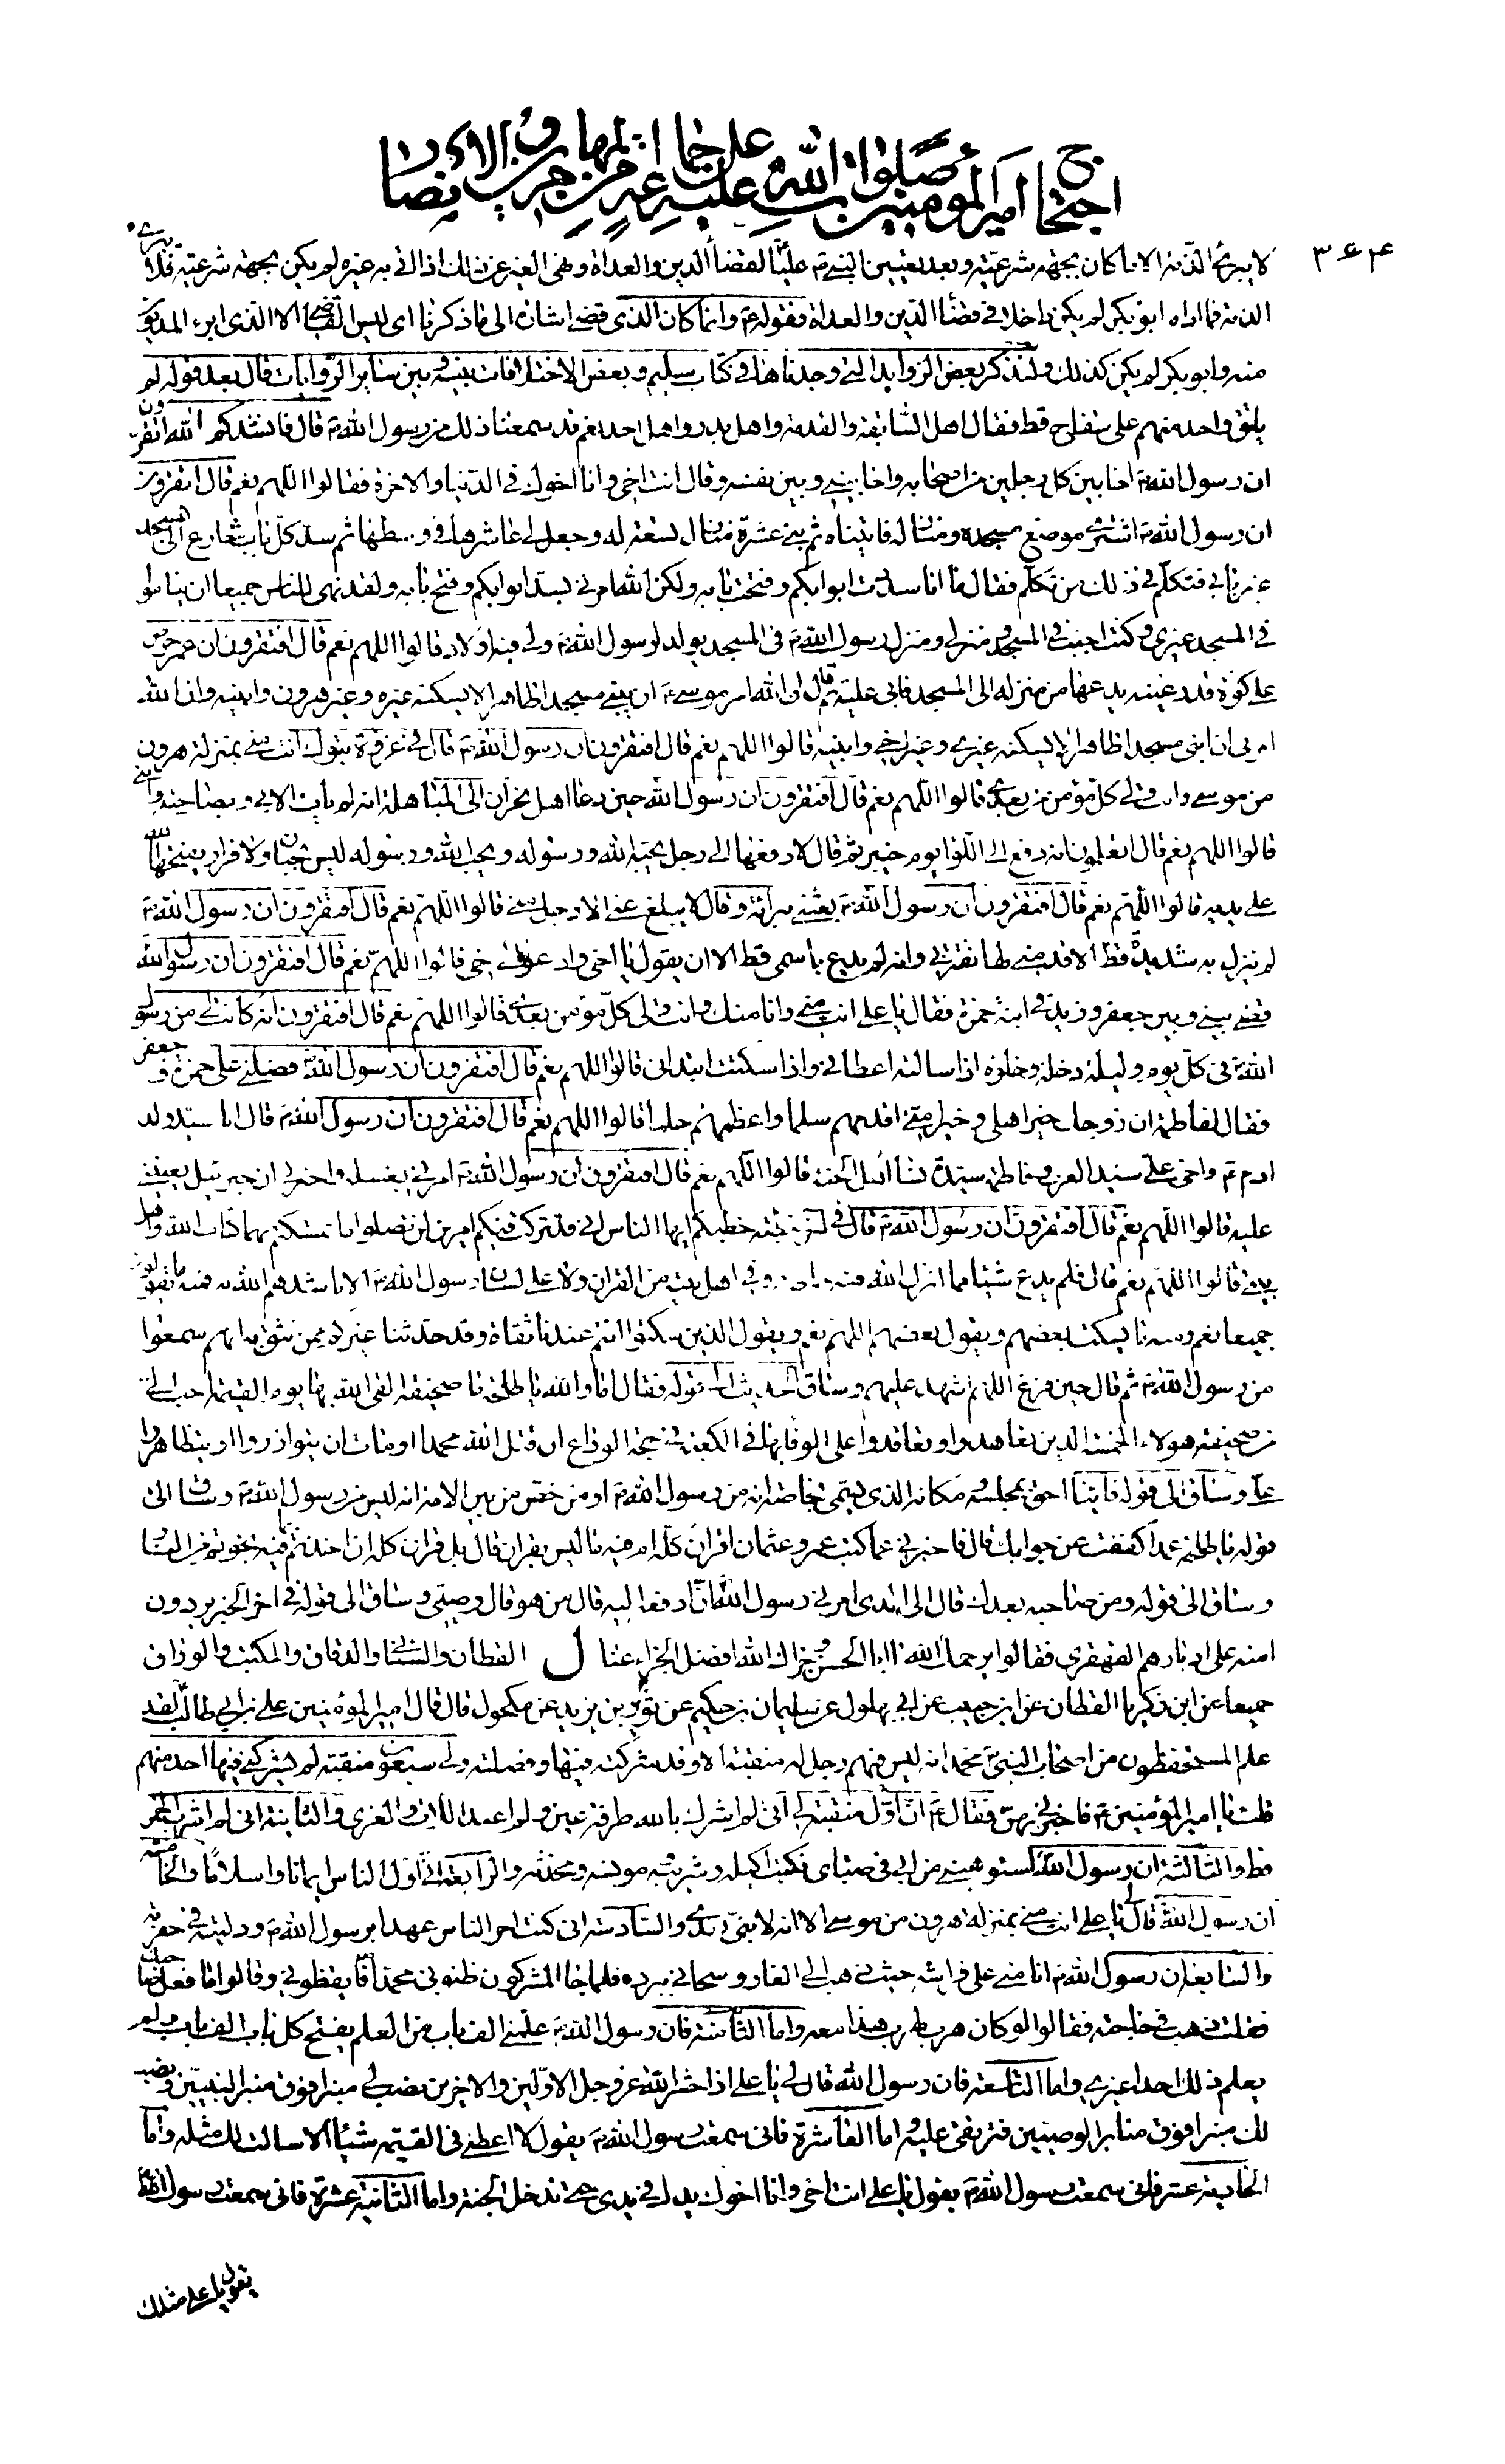 احتجاج امير المؤمنين صلوات الله عليه على جماعة من المهاجرين والانصار
۳۶۴
لا يبرئ الذمة الا ما كان بجهة شرعية وبعد تعيين النبي ص عليا لقضاء الدين والعداة ونهى الغير عن ذلك اذا اتى به غيره لم يكن بجهة شرعية فلا يبرئ
الذمة فما اداه ابو بكر لم يكن داخلا في قضاء الدين والعداة فقوله ع وانما كان الذي قضى اشارة الى ما ذكرنا اى ليس القاضى الا الذى ابرء المديون
منه وابو بكر لم يكن كذلك ولنذكر بعض الزوايد التي وجدناها في كتاب سليم وبعض الاختلافات بينه وبين ساير الروايات قال بعد قوله لم
يلتق واحد منهم على سفاح قط فقال اهل السابقة والقدمة واهل بدر واهل احد نعم قد سمعنا ذلك من رسول الله ص قال فانشدكم الله اتقرون
ان رسول الله ص اخا بين كل رجلين من اصحابه واخا بيني وبين نفسه وقال انت اخي وانا اخوك في الدنيا والاخرة فقالوا اللهم نعم قال اتقرون
ان رسول الله ص اشترى موضع مسجده ومنازله فابتناه ثم بنى عشرة منازل تسعة له وجعل لي عاشرها في وسطها ثم سد كل باب شارع الى المسجد
غير بابي فتكلم في ذلك من تكلم فقال ما انا سددت ابوابكم وفتحت بابه ولكن الله امرني بسد ابوابكم وفتح بابه ولقد نهى الناس جميعا ان يناموا
في المسجد غيرى وكنت اجنب في المسجد ومنزلي ومنزل رسول الله ص في المسجد يولد لرسول الله ص ولي فيه اولاد قالوا اللهم نعم قال افتقرون ان عمر حرص
على كوة قدر عينه يدعها من منزله الى المسجد فابى عليه ثم قال ان الله امر موسى ع ان يبنى مسجدا طاهرا لا يسكنه غيره وغير هرون وابنيه وان الله
امرني ان ابني مسجدا طاهرا لا يسكنه غيرى وغير اخي وابنيه قالوا اللهم نعم قال افتقرون ان رسول الله ص قال في غزوة تبوك انت منى بمنزلة هرون
من موسى وانت ولي كل مؤمن من بعدى قالوا اللهم نعم قال افتقرون ان رسول الله حين دعا اهل نجران الى المباهلة انه لم يات الا بي وبصاحبته وابني
قالوا اللهم نعم قال اتعلمون انه دفع الى اللواء يوم خيبر ثم قال لادفعنها الى رجل يحبه الله ورسوله ويحب الله ورسوله ليس بجبان ولا فرار يفتحها الله
على يديه قالوا اللهم نعم قال افتقرون ان رسول الله ص بعثني ببراءة وقال لا يبلغ عنى الا رجل منى قالوا اللهم نعم قال افتقرون ان رسول الله ص
لم ينزل به شديدة قط الا قدمنى لها ثقة بي وانه لم يدع باسمى قط الا ان يقول يا اخى وادعوا لي اخى قالوا اللهم نعم قال افتقرون ان رسول الله
قضى بيني وبين جعفر وزيد في ابنة حمزة فقال يا على انت منى وانا منك وانت ولى كل مؤمن بعدى قالوا اللهم نعم قال افتقرون انه كانت لي من رسول
الله ص في كل يوم وليلة دخلة وخلوة اذا سالته اعطانى واذا سكتت ابتدانى قالوا اللهم نعم قال افتقرون ان رسول الله ص فضلنى على حمزة وجعفر
فقال لفاطمة ان زوجك خير اهلى وخير امتى اقدمهم سلما واعظمهم حلما قالوا اللهم نعم قال افتقرون ان رسول الله ص قال انا سيد ولد
ادم ع واخى على سيد العرب وفاطمة سيدة نساء اهل الجنة قالوا اللهم نعم قال افتقرون ان رسول الله ص امرني بغسله واخبرني ان جبرئيل يعيننى
عليه قالوا اللهم نعم قال افتقرون ان رسول الله ص قال في اخر خطبة خطبكم ايها الناس اني قد تركت فيكم امرين لن تضلوا ما تمسكتم بهما كتاب الله واهل
بيتى قالوا اللهم نعم قال فلم يدع شيئا مما انزل الله فيه وفي اهل بيته من القران ولا على لسان رسول الله ص الا ناشدهم الله به فمنه ما يقولون
جميعا نعم ومنه ما يسكت بعضهم ويقول بعضهم اللهم نعم ويقول الذين سكتوا انتم عندنا ثقاة وقد حدثنا غيركم ممن نثق به انهم سمعوا
من رسول الله ص ثم قال حين فرغ اللهم اشهد عليهم وساق الحديث الى قوله فقال اما والله يا طلحة ما صحيفة القى الله بها يوم القيمة احب الى
من صحيفة هولاء الخمسة الذين تعاهدوا وتعاقدوا على الوفا بها في الكعبة في حجة الوداع ان قتل الله محمدا او مات ان يتوازروا او يتظاهروا
على وساق الى قوله فايّنا احق بمجلسه ومكانه الذى يسمى بخاصته من رسول الله ص او من خص من بين الامة انه ليس من رسول الله ص وساق الى
قوله يا طلحة عمدا كففت عن جوابك قال فاخبرني عما كتب عمر وعثمان اقران كله ام فيه ما ليس بقران قال بل قران كله ان اخذتم بما فيه نجوتم من النار
وساق الى قوله ومن صاحبه بعدك قال الى الذى امرنى رسول الله ان ادفعه اليه قال من هو قال وصيى وساق الى قوله في اخر الخبر يردون
امته على ادبارهم القهقرى فقالوا يرحمك الله يا ابا الحسن وجزاك الله افضل الجزاء عنا ل القطان والسناني والدقاق والمكتب والوراق
جميعا عن ابن زكريا القطان عن ابن حبيب عن ابن بهلول عن سليمان بن حكيم عن ثور بن يزيد عن مكحول قال قال امير المؤمنين على بن ابي طالب لقد
علم المستحفظون من اصحاب النبى محمد انه ليس فيهم رجل له منقبة الا وقد شركته فيها وفضلته ولى سبعون منقبة لم يشركنى فيها احد منهم
قلت يا امير المؤمنين ع فاخبرني بهن فقال ع ان اول منقبة لي انى لم اشرك بالله طرفة عين ولم اعبد اللات والعزى والثانية انى لم اشرب الخمر
قط والثالثة ان رسول الله استوهبني من ابي في صباى فكنت اكيله وشريبه ومونسه ومحدثه والرابعة انى اول الناس ايمانا واسلاما والخامسة
ان رسول الله قال لى يا على انت منى بمنزلة هرون من موسى الا انه لا نبى بعدى والسادسة انى كنت اخر الناس عهدا برسول الله ص ودليته في حفرته
والسابعة ان رسول الله ص انامنى على فراشه حيث ذهب الى الغار وسجانى ببرده فلما جا المشركون ظنونى محمدا فايقظونى وقالوا ما فعل صاحبك
فقلت ذهب في حاجته فقالوا لو كان هرب لهرب هذا معه واما الثامنة فان رسول الله ص علمنى الف باب من العلم يفتح كل باب الف باب ولم
يعلم ذلك احدا غيرى واما التاسعة فان رسول الله قال لي يا على اذا حشر الله عز وجل الاولين والاخرين نصب لي منبرا فوق منبر النبيين ونصب
لك منبرا فوق منابر الوصيين فترتقى عليه واما العاشرة فانى سمعت رسول الله ص يقول لا اعطى في القيمة شيئا الا سالت لك مثله واما
الحادية عشر فانى سمعت رسول الله ص يقول يا على انت اخى وانا اخوك يدك في يدى حتى تدخل الجنة واما الثانية عشرة فانى سمعت رسول الله ص
يقول يا على مثلك